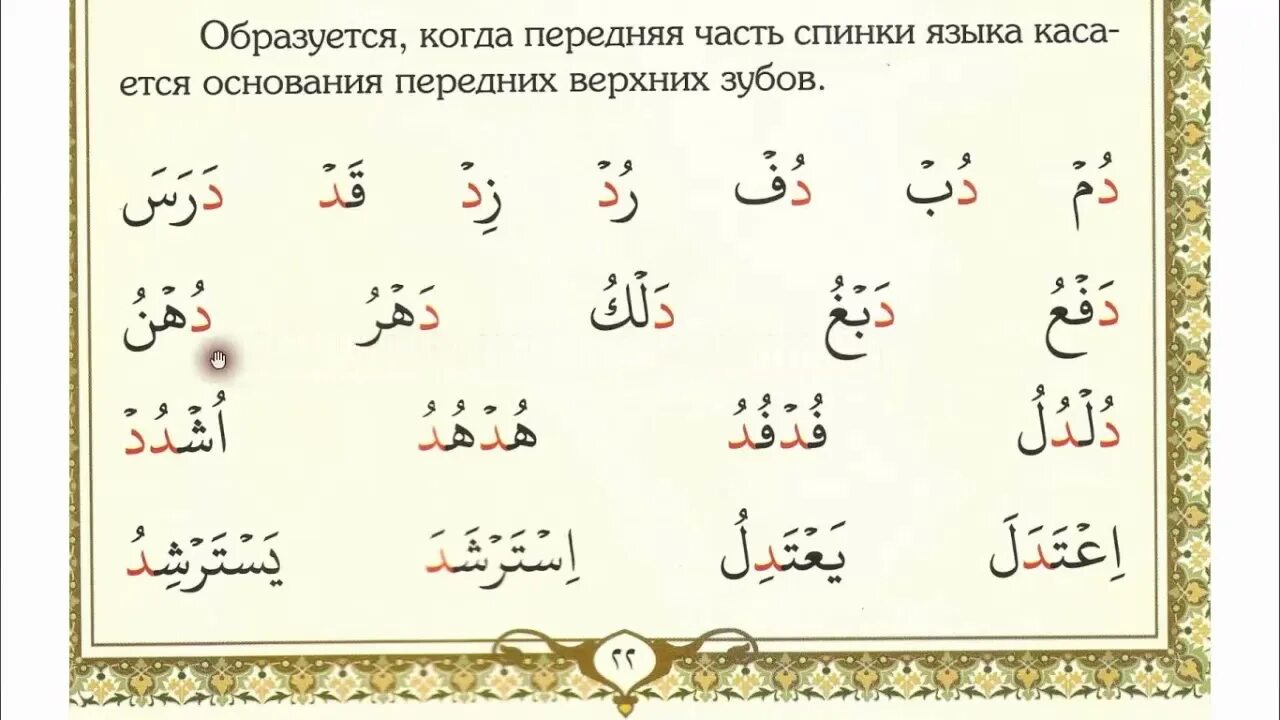 Образуется, когда передняя часть спинки языка каса-
ется основания передних верхних зубов.
دُمْ دُبْ دُفْ رُدْ زِدْ قَدْ دَرَسَ
دَفْعُ دَبْغُ دَلْكُ دَهْرُ دُهْنُ
دُلْدُلُ فُدْفُدُ هُدْهُدُ اُشْدُدْ
اِعْتَدَلَ يَعْتَدِلُ اِسْتَرْشَدَ يَسْتَرْشِدُ
٢٢